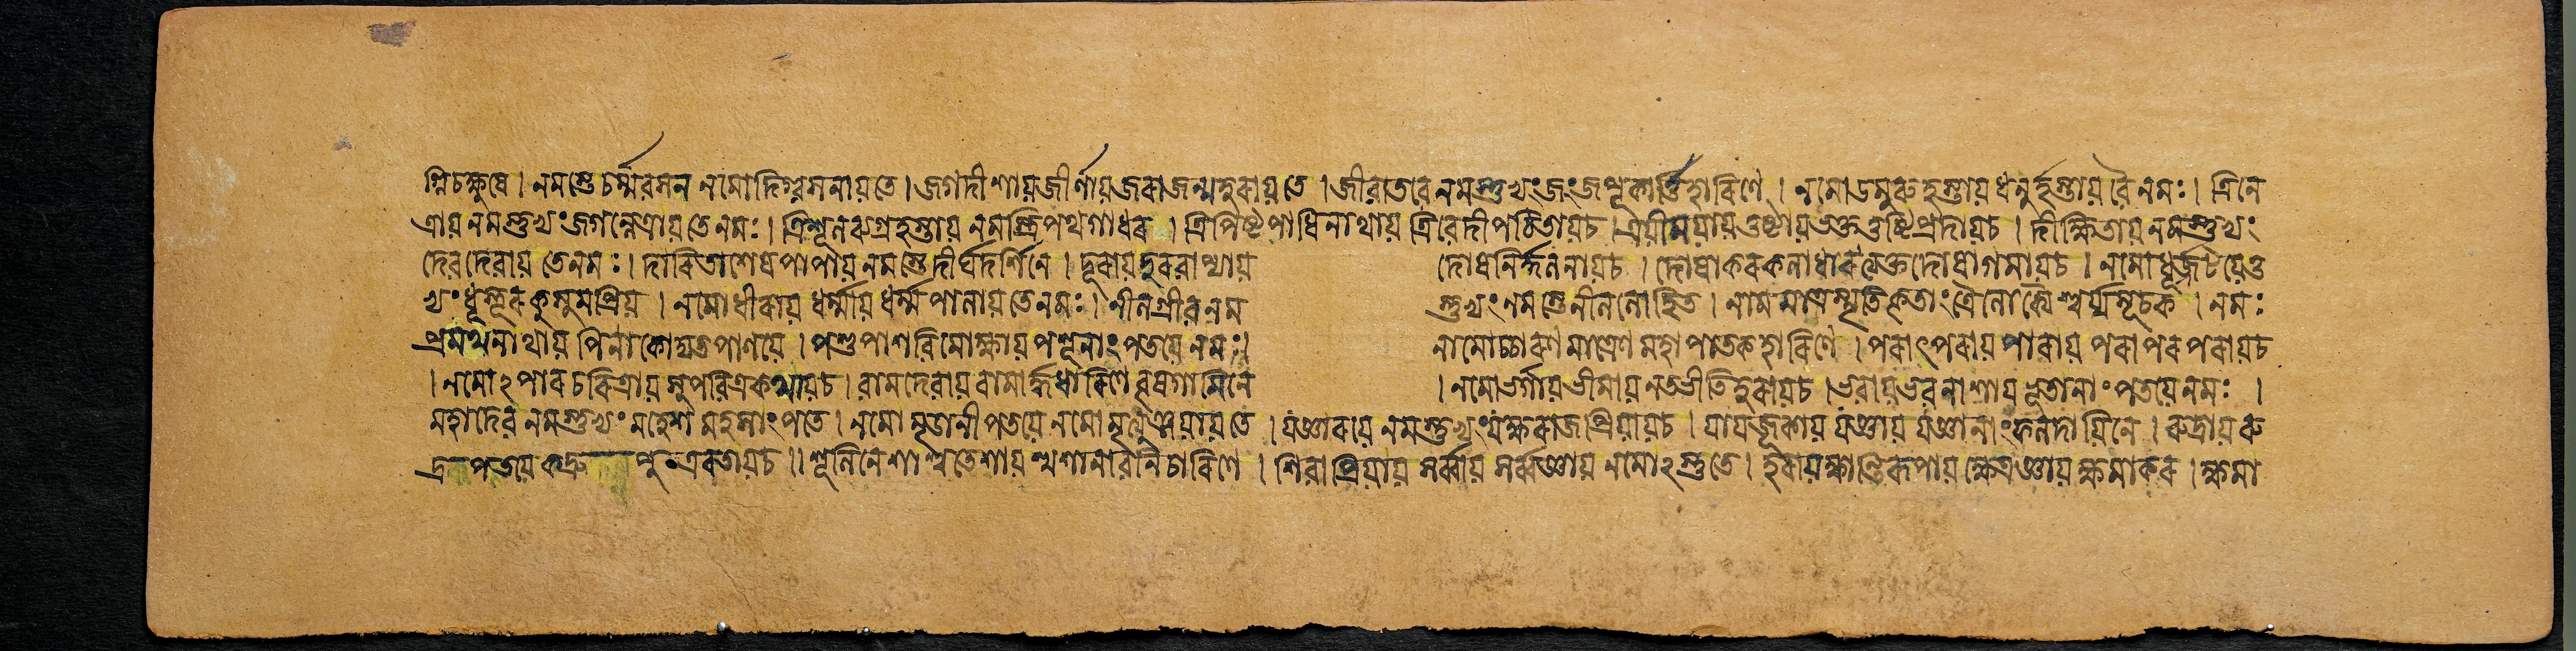 গ্নিচক্ষুষে । নমস্তে চর্ম্মবসন নমো দিগ্বসনায়তে । জগদীশায় জীর্ণায় জরাজন্মহরায়তে । জীবায়তে নমস্তুভ্যং জংজপূকার্ত্তিহারিণে । নমো ডমরুহস্তায় ধনুর্হস্তায় বৈ নমঃ । ত্রিনে
ত্রায় নমস্তুভ্যং জগন্নেত্রায় তে নমঃ । ত্রিশূলব্যগ্রহস্তায় নমস্ত্রিপথগাধর । ত্রিপিষ্টপাধিনাথায় ত্রিবেদীপঠিতায়চ । ত্রয়ীময়ায় তুষ্টায় ভক্ততুষ্টিপ্রদায়চ । দীক্ষিতায় নমস্তুভ্যং
দেবদেবায় তে নমঃ । দারিতাশেষপাপায় নমস্তে দীর্ঘদর্শিনে । দূরায় দুরবাপ্যায় দোষনির্দ্দলনায়চ । দোষাকরকলাধার ত্যক্তদোষাগমায়চ । নমো ধূর্জটয়ে তু
ভ্যং ধুস্তূরকুসুমপ্রিয় । নমো ধীরায় ধর্ম্মায় ধর্ম্মপালায় তে নমঃ । নীলগ্রীব নম স্তুভ্যং নমস্তে নীললোহিত । নামমাত্রস্মৃতিকৃতাং ত্রৈলোক্যৈশ্বর্য্যসূচক । নমঃ
প্রমথনাথায় পিনাকোদ্যতপাণয়ে । পশুপাশবিমোক্ষায় পশূনাং পতয়ে নমঃ । নামোচ্চারণমাত্রেণ মহাপাতকহারিণে । পরাৎপরায় পারায় পরাপরপরায়চ
। নমোঽপারচরিত্রায় সুপবিত্রকথায়চ । বামদেবায় বামার্দ্ধধারিণে বৃষগামিনে । নমো ভর্গায় ভীমায় নতভীতিহরায়চ । ভবায় ভবনাশায় ভূতানাং পতয়ে নমঃ ।
মহাদেব নমস্তুভ্যং মহেশ মহসাংপতে । নমো মৃড়ানীপতয়ে নমো মৃত্যুঞ্জয়ায়তে । যজ্ঞারয়ে নমস্তুভ্যং যক্ষরাজপ্রিয়ায়চ । যাযজূকায় যজ্ঞায় যজ্ঞানাং ফলদায়িনে । রুদ্রায় রু
দ্রপতয়ে কদ্রু শূলিনে শাশ্বতেশায় শ্মশানাবনিচারিণে । শিবাপ্রিয়ায় সর্ব্বায় সর্ব্বজ্ঞায় নমোঽস্তুতে । হরায় ক্ষান্তিরূপায় ক্ষেত্রজ্ঞায় ক্ষমাকর । ক্ষমা